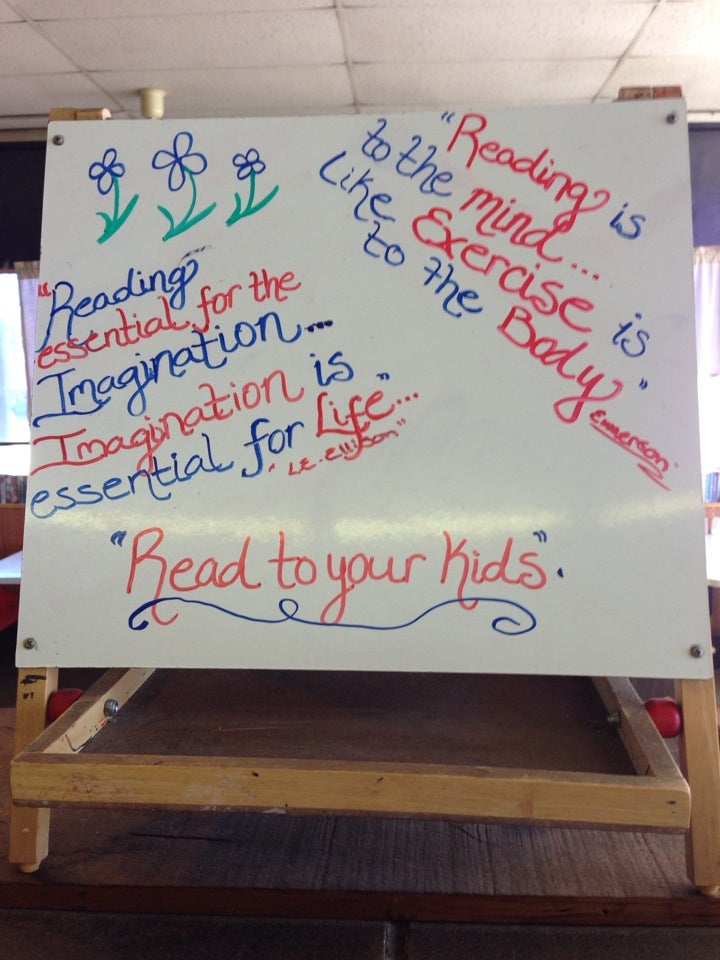 "Reading
essential for the
Imagination...
Imagination is
essential for Life"...
"L.E. ellison"
"Reading is
to the mind...
Like Exercise is
to the Body"
Emmerson
"Read to your Kids".